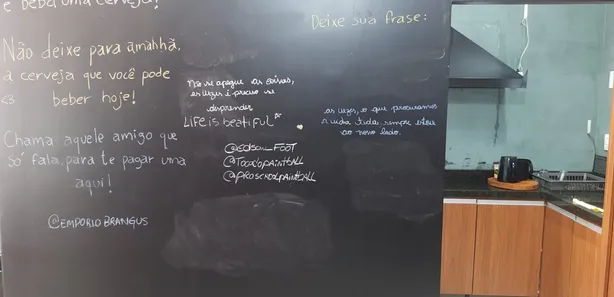 e beba uma cerveja!
Deixe sua frase:
Não deixe para amanhã,
a cerveja que você pode
<3 beber hoje!
Chama aquele amigo que
só fala, para te pagar uma
aqui!
@EMPORIOBRANGUS
Não se apegue as coisas,
as vezes é preciso se
desprender
Life is beatiful
@edson_FOOT
@TOCADOPAINTBALL
as vezes, o que procuramos
a vida toda, sempre esteve
ao nosso lado.